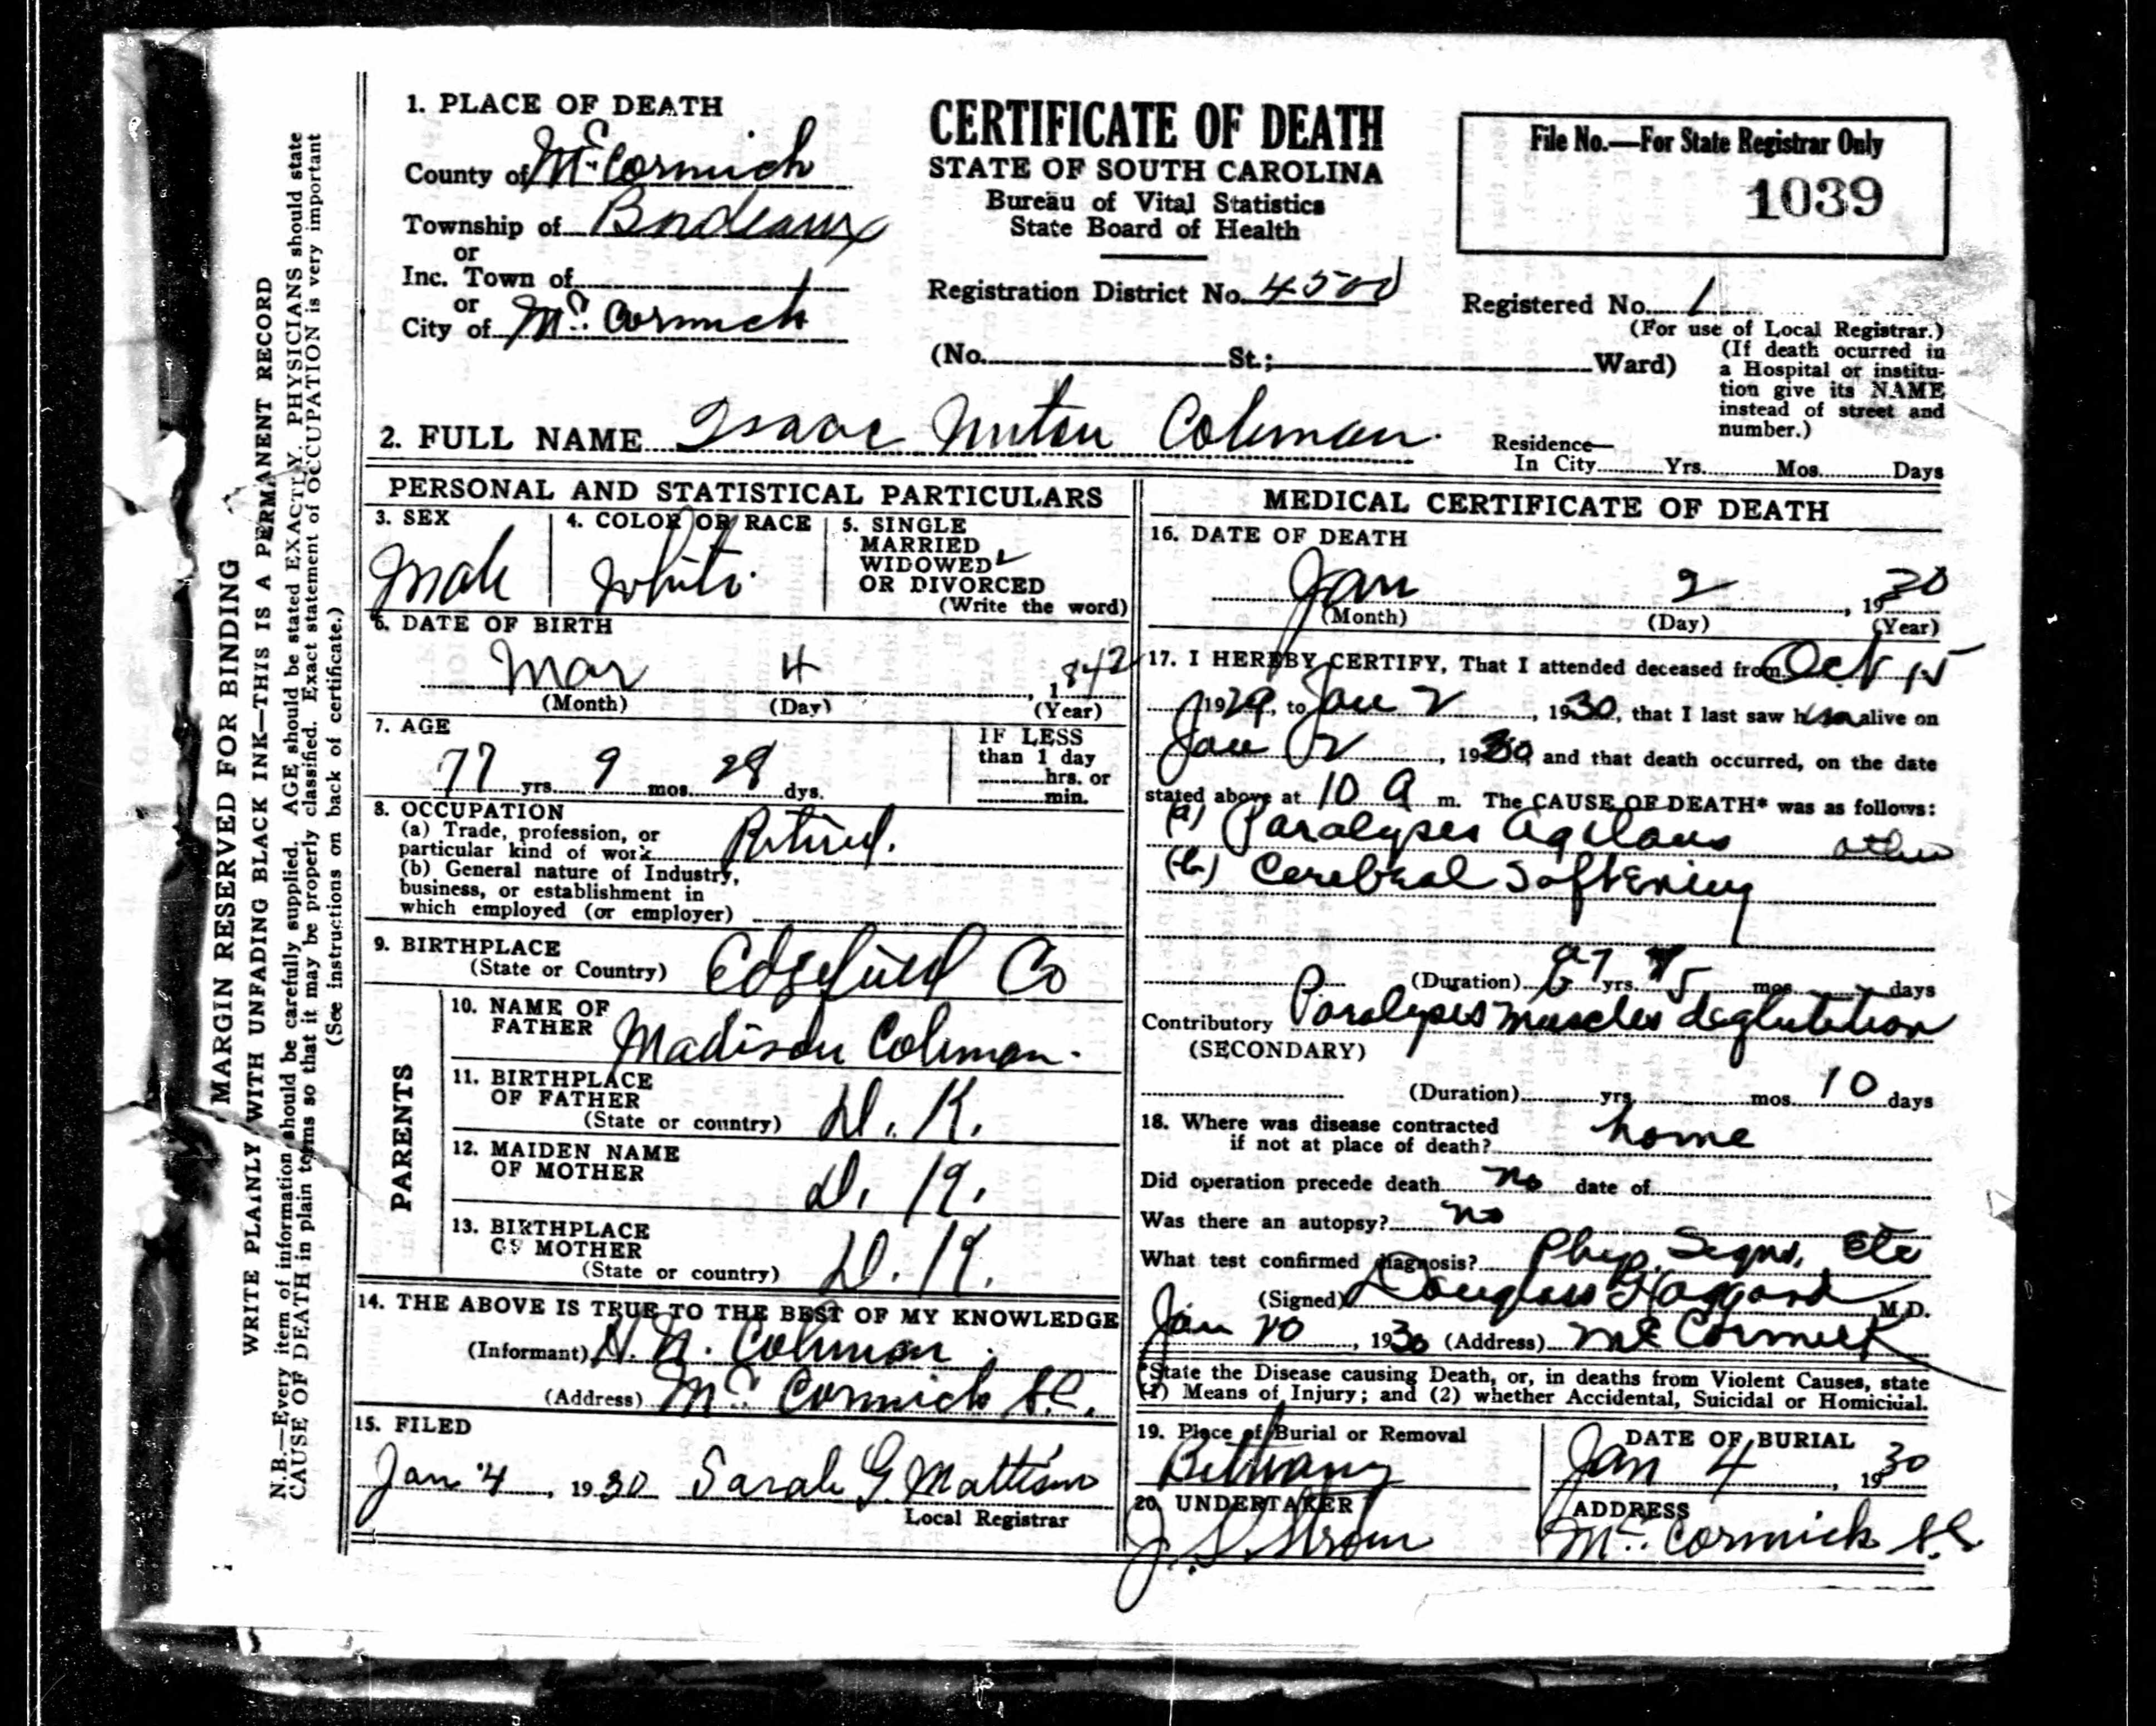 MARGIN RESERVED FOR BINDING
WRITE PLAINLY WITH UNFADING BLACK INK—THIS IS A PERMANENT RECORD
N.B.—Every item of information should be carefully supplied. AGE should be stated EXACTLY. PHYSICIANS should state
CAUSE OF DEATH in plain terms so that it may be properly classified. Exact statement of OCCUPATION is very important
(See instructions on back of certificate.)
1. PLACE OF DEATH
County of McCormick
Township of Bordeaux
or
Inc. Town of
or
City of McCormick
CERTIFICATE OF DEATH
STATE OF SOUTH CAROLINA
Bureau of Vital Statistics
State Board of Health
Registration District No. 4500
(No. St.; Ward)
File No.—For State Registrar Only
1039
Registered No. 1
(For use of Local Registrar.)
(If death ocurred in
a Hospital or institu-
tion give its NAME
instead of street and
number.)
2. FULL NAME Isaac Coleman.
Residence—
In City Yrs. Mos. Days
PERSONAL AND STATISTICAL PARTICULARS
3. SEX
Male
4. COLOR OR RACE
White
5. SINGLE
MARRIED
WIDOWED ✓
OR DIVORCED
(Write the word)
6. DATE OF BIRTH
Mar 4, 1842
(Month) (Day) (Year)
7. AGE
77 yrs. 9 mos. 28 dys.
IF LESS
than 1 day
hrs. or
min.
8. OCCUPATION
(a) Trade, profession, or
particular kind of work Retired.
(b) General nature of Industry,
business, or establishment in
which employed (or employer)
9. BIRTHPLACE
(State or Country) Edgefield Co
PARENTS
10. NAME OF
FATHER Madison Coleman.
11. BIRTHPLACE
OF FATHER
(State or country) D. K.
12. MAIDEN NAME
OF MOTHER D. K.
13. BIRTHPLACE
OF MOTHER
(State or country) D. K.
14. THE ABOVE IS TRUE TO THE BEST OF MY KNOWLEDGE
(Informant) H. N. Coleman.
(Address) McCormick S.C.
15. FILED
Jan 4, 1930 Sarah G Mattison
Local Registrar
MEDICAL CERTIFICATE OF DEATH
16. DATE OF DEATH
Jan 2, 1930
(Month) (Day) (Year)
17. I HEREBY CERTIFY, That I attended deceased from Oct 15
1929, to Jan 2, 1930, that I last saw him alive on
Jan 2, 1930, and that death occurred, on the date
stated above at 10 a m. The CAUSE OF DEATH* was as follows:
(a) Paralyses Agitans
(b) Cerebral Softening
(Duration) yrs. mos. days
Contributory Paralyses muscles deglutition
(SECONDARY)
(Duration) yrs. mos. 10 days
18. Where was disease contracted
if not at place of death? home
Did operation precede death no date of
Was there an autopsy? no
What test confirmed diagnosis? Phys. Signs, Etc
(Signed) Douglass Haggard M.D.
Jan 10, 1930 (Address) McCormick
*State the Disease causing Death, or, in deaths from Violent Causes, state
(1) Means of Injury; and (2) whether Accidental, Suicidal or Homicidal.
19. Place of Burial or Removal
Bethany
DATE OF BURIAL
Jan 4, 1930
20. UNDERTAKER
J. S. Strom
ADDRESS
McCormick S.C.